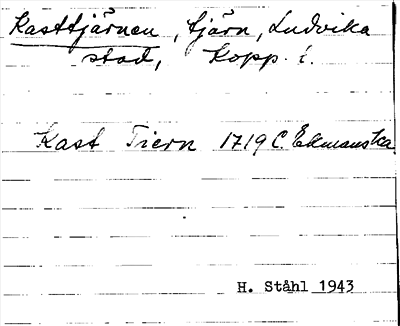 Kasttjärnen, tjärn, Ludvika
stad, Kopp. l.
Kast Tiern 1719 C. Ekmanska
H. Ståhl 1943